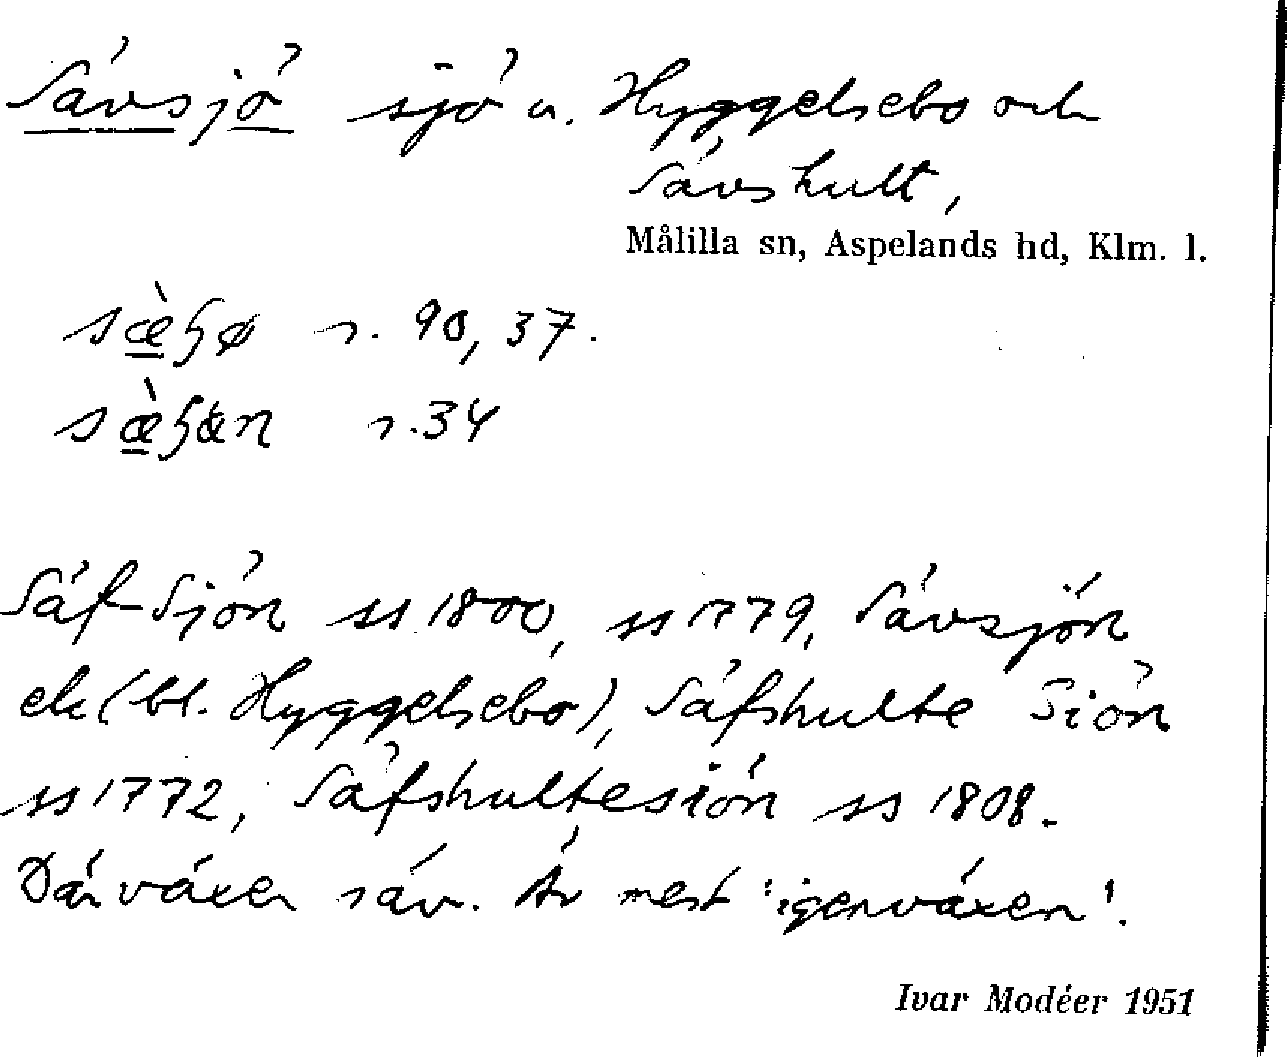 Sävsjö sjö u. Hyggelsebo och
Sävshult,
Målilla sn, Aspelands hd, Klm. l.
sæ̀ɧø r. 90, 37.
sæ̀ɧøn r. 34
Säf Sjön ss 1800, ss 1779, Sävsjön
ek (bl. Hyggelsebo), Säfshulte Siön
ss 1772, Säfshultesiön ss 1808.
Där växer säv. Är mest 'igenväxen'.
Ivar Modéer 1951